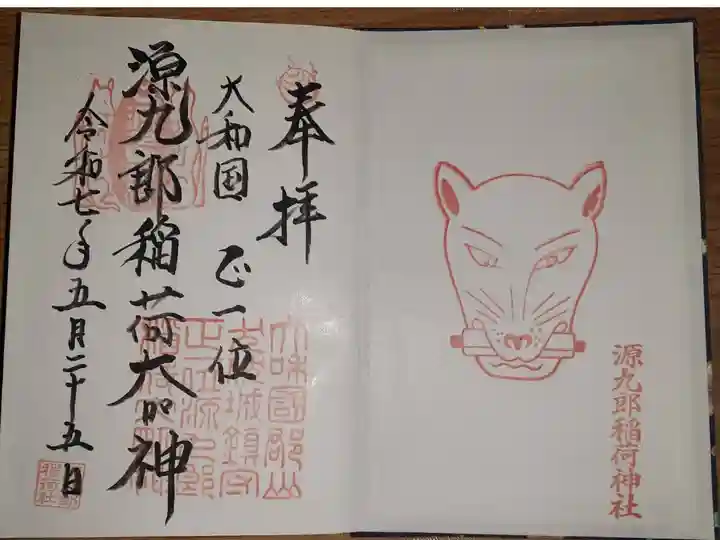 奉拝
大和国 正一位
源九郎稲荷大明神
令和七年五月二十五日
源九郎稲荷神社